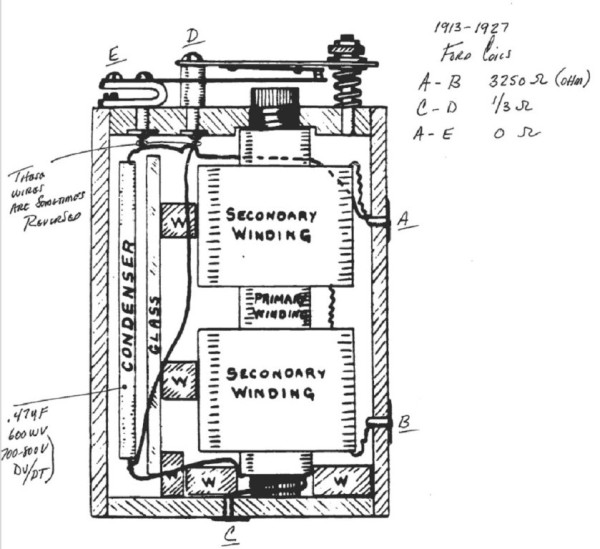 1913-1927
FORD COILS
A-B 3250 Ω (OHM)
C-D 1/3 Ω
A-E 0 Ω
E
D
THESE
WIRES
ARE SOMETIMES
REVERSED
CONDENSER
GLASS
W
SECONDARY
WINDING
A
PRIMARY
WINDING
W
SECONDARY
WINDING
B
.47µF
600WV
700-800V
DV/DT)
W
W
W
C